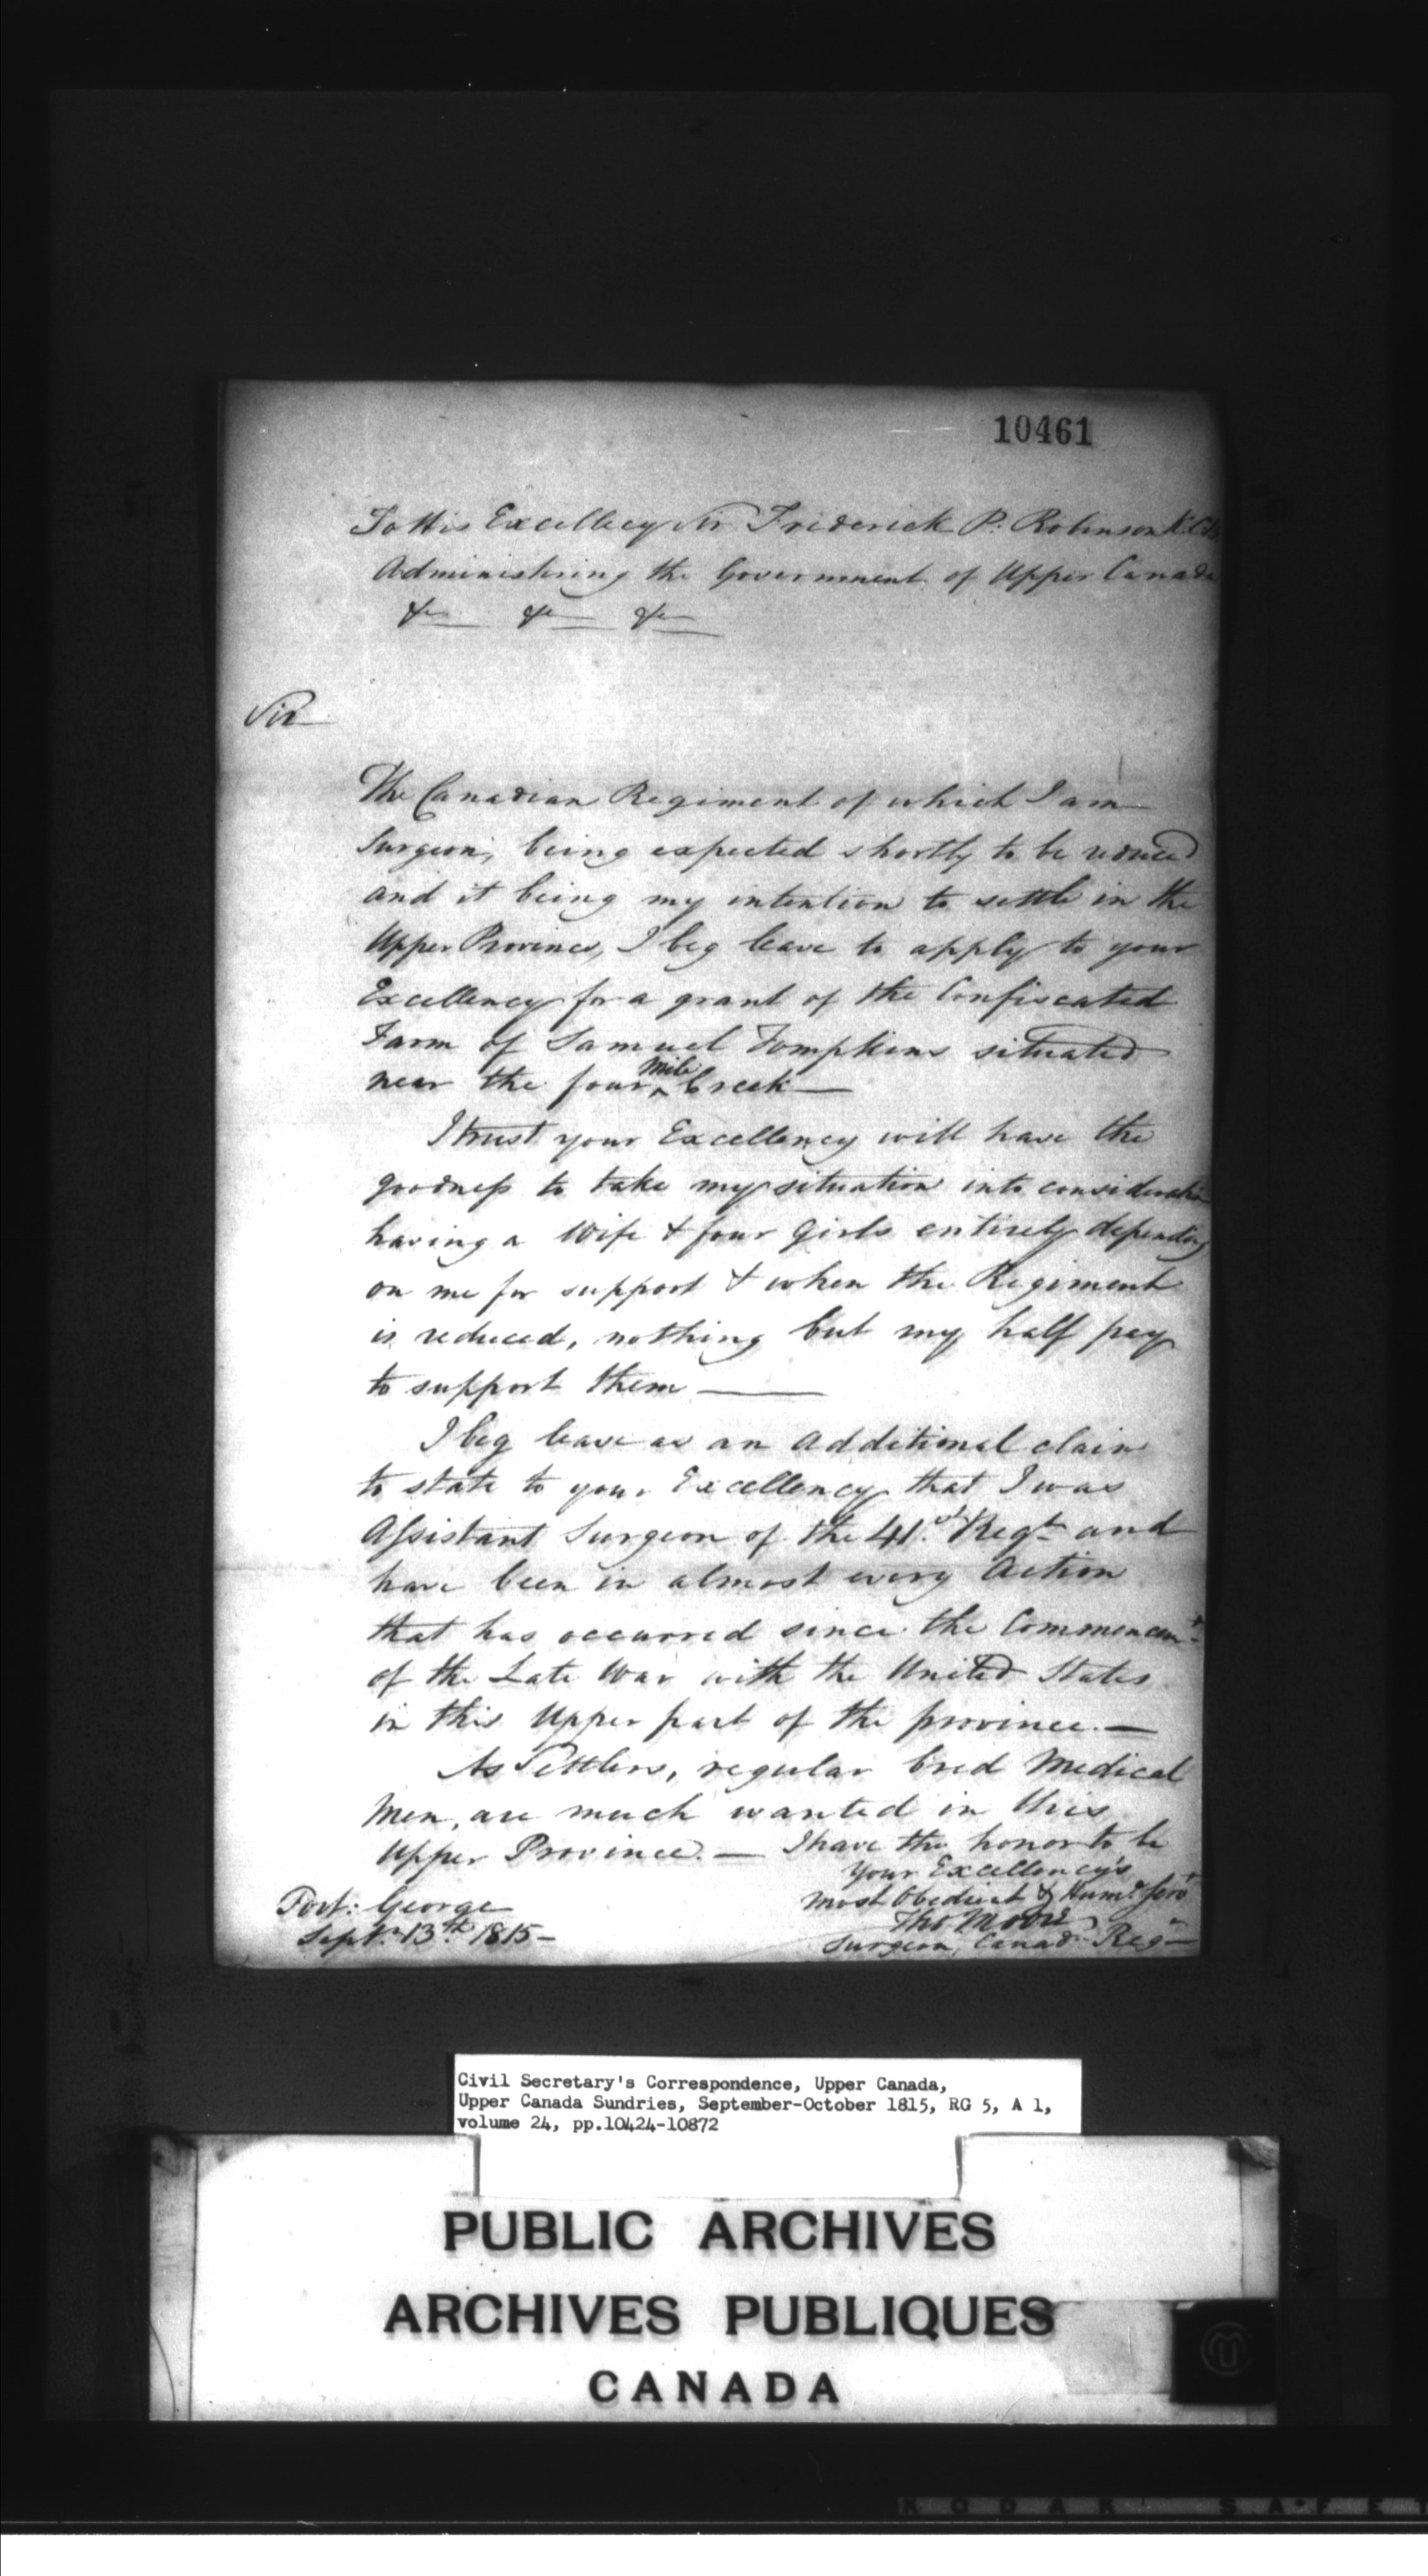 10461
To His Excellecy Sir Friderick P. Robinson K.C.B.
Administiring the Government of Upper Canada
&c &c &c
Sir
The Canadian Regiment of which I am
Surgeon, being expected shortly to be reduced
and it being my intention to settle in the
Upper Province, I beg leave to apply to your
Excellency for a grant of the Confiscated
Farm of Samuel Tompkins situated
near the four Mile Creek —
I trust your Excellency will have the
goodness to take my situation into consideration
having a Wife & four Girls entirely depending
on me for support & when the Regiment
is reduced, nothing but my half pay
to support them —
I beg leave as an Additional claim
to state to your Excellency that I was
Assistant Surgeon of the 41st Regt and
have been in almost every Action
that has occurred since the Commencemt
of the Late War with the United States
in this Upper part of the province. —
As Settlers, regular bred Medical
Men, are much wanted in this
Upper Province. — I have the honor to be
Your Excellency's
Most Obedient & Humb Servt
Tho Moore
Surgeon, Canadn Regt
Fort: George
Septr 13th 1815 —
Civil Secretary's Correspondence, Upper Canada,
Upper Canada Sundries, September-October 1815, RG 5, A 1,
volume 24, pp.10424-10872
PUBLIC ARCHIVES
ARCHIVES PUBLIQUES
CANADA
KODAK SAFET